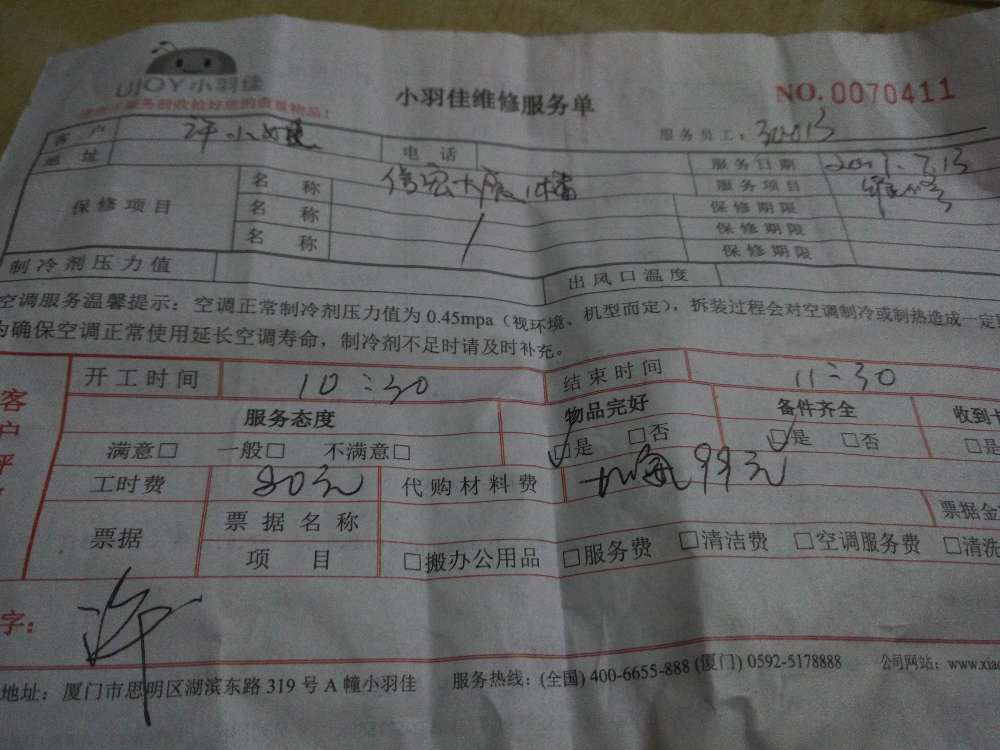 UJOY小羽佳
小羽佳维修服务单
NO. 0070411
服务员工: 30013
客户 许小姐 电话 服务日期 2017.7.13
地址 服务项目
保修项目 名称 保修期限
名称 保修期限
名称 保修期限
制冷剂压力值 出风口温度
空调服务温馨提示：空调正常制冷剂压力值为 0.45mpa（视环境、机型而定），拆装过程会对空调制冷或制热造成一定
为确保空调正常使用延长空调寿命，制冷剂不足时请及时补充。
开工时间 10:30 结束时间 11:30
客户评
服务态度 物品完好 备件齐全 收到
满意□ 一般□ 不满意□ ☑是 □否 ☑是 □否 □是
工时费 80元 代购材料费 99元
票据 票据名称 票据金
项目 □搬办公用品 □服务费 □清洁费 □空调服务费 □清洗
字： 许
地址：厦门市思明区湖滨东路 319 号 A 幢小羽佳 服务热线：(全国) 400-6655-888 (厦门) 0592-5178888 公司网站：www.xiao